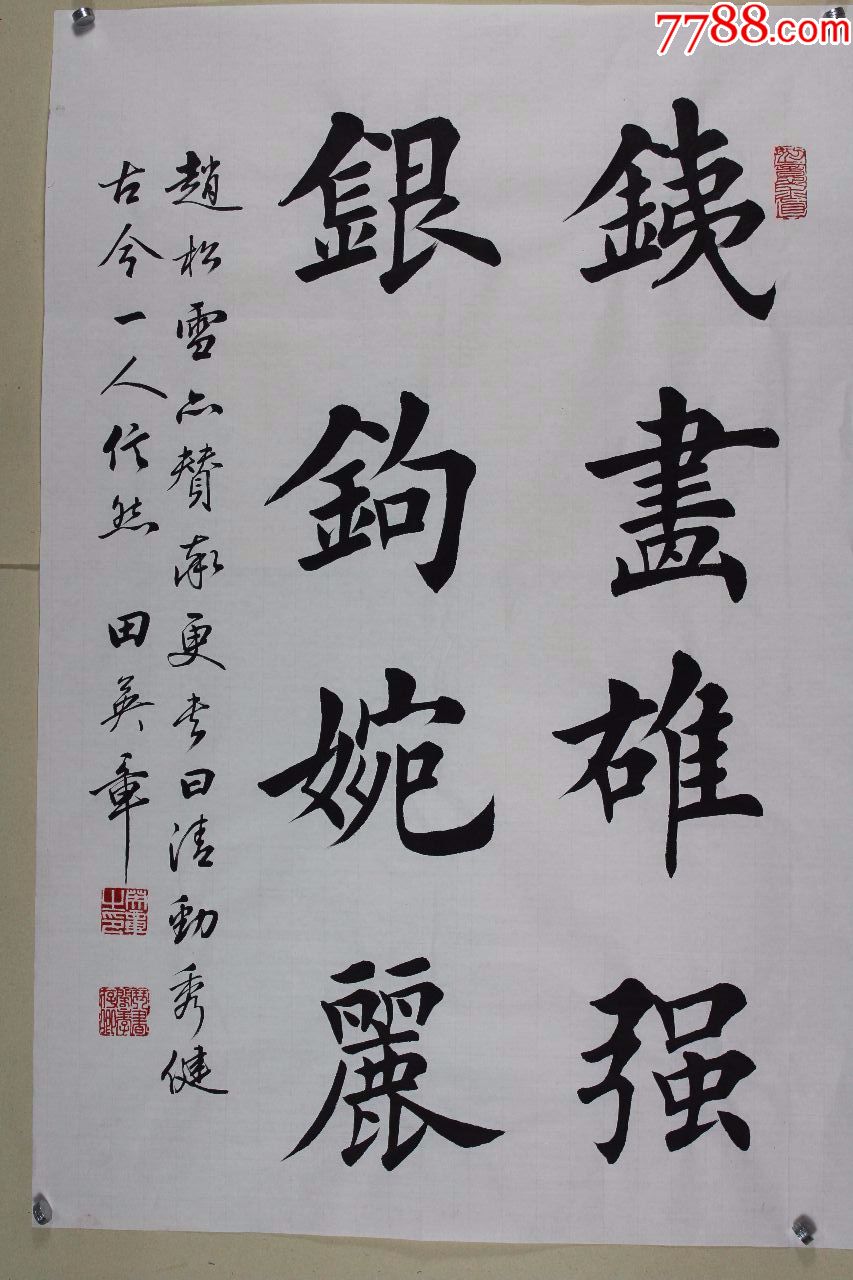 7788.com
銕畫雄强
銀鉤婉麗
趙松雪亦賛率更书曰清勁秀健
古今一人信然 田英章